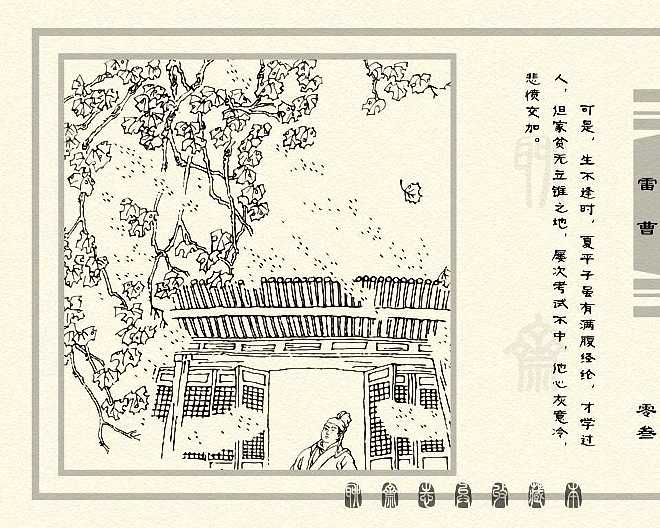 可是，生不逢时，夏平子虽有满腹经纶，才学过
人，但家贫无立锥之地，屡次考试不中，他心灰意冷，
悲愤交加。
雷曹
零叁
聊斋志异收藏本